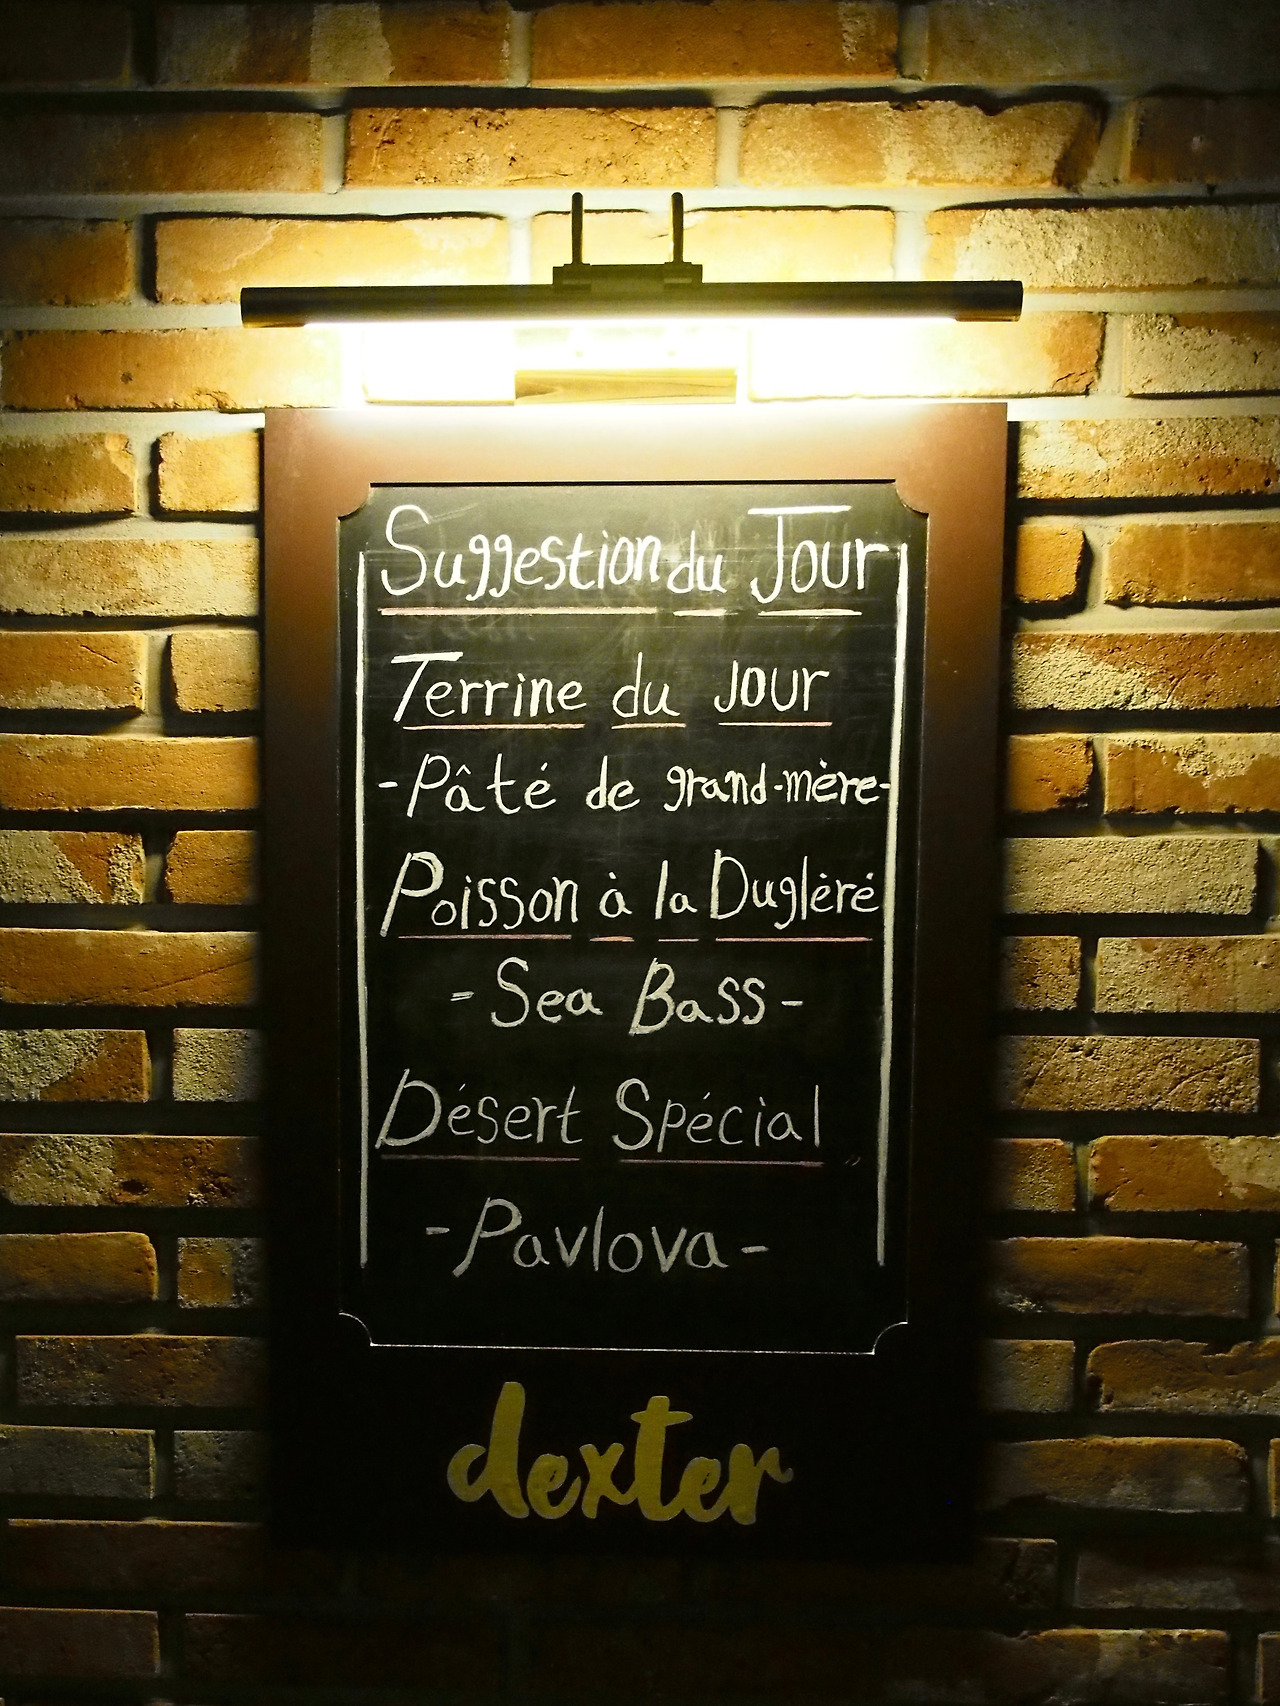 Suggestion du Jour
Terrine du Jour
-Pâté de grand-mère-
Poisson à la Dugléré
- Sea Bass -
Désert Spécial
- Pavlova -
dexter